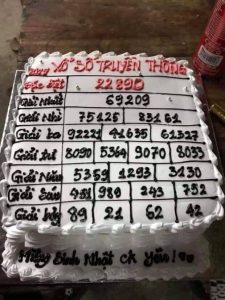 XỔ SỐ TRUYỀN THỐNG
Đặc Biệt 22890
Giải Nhất 69209
Giải Nhì 75125 83161
Giải ba 92221 41635 61327
Giải tư 8090 5364 9070 8033
Giải Năm 5359 1293 3130
Giải Sáu 451 989 243 752
Giải bảy 89 21 62 42
Mừng Sinh Nhật ck yêu!